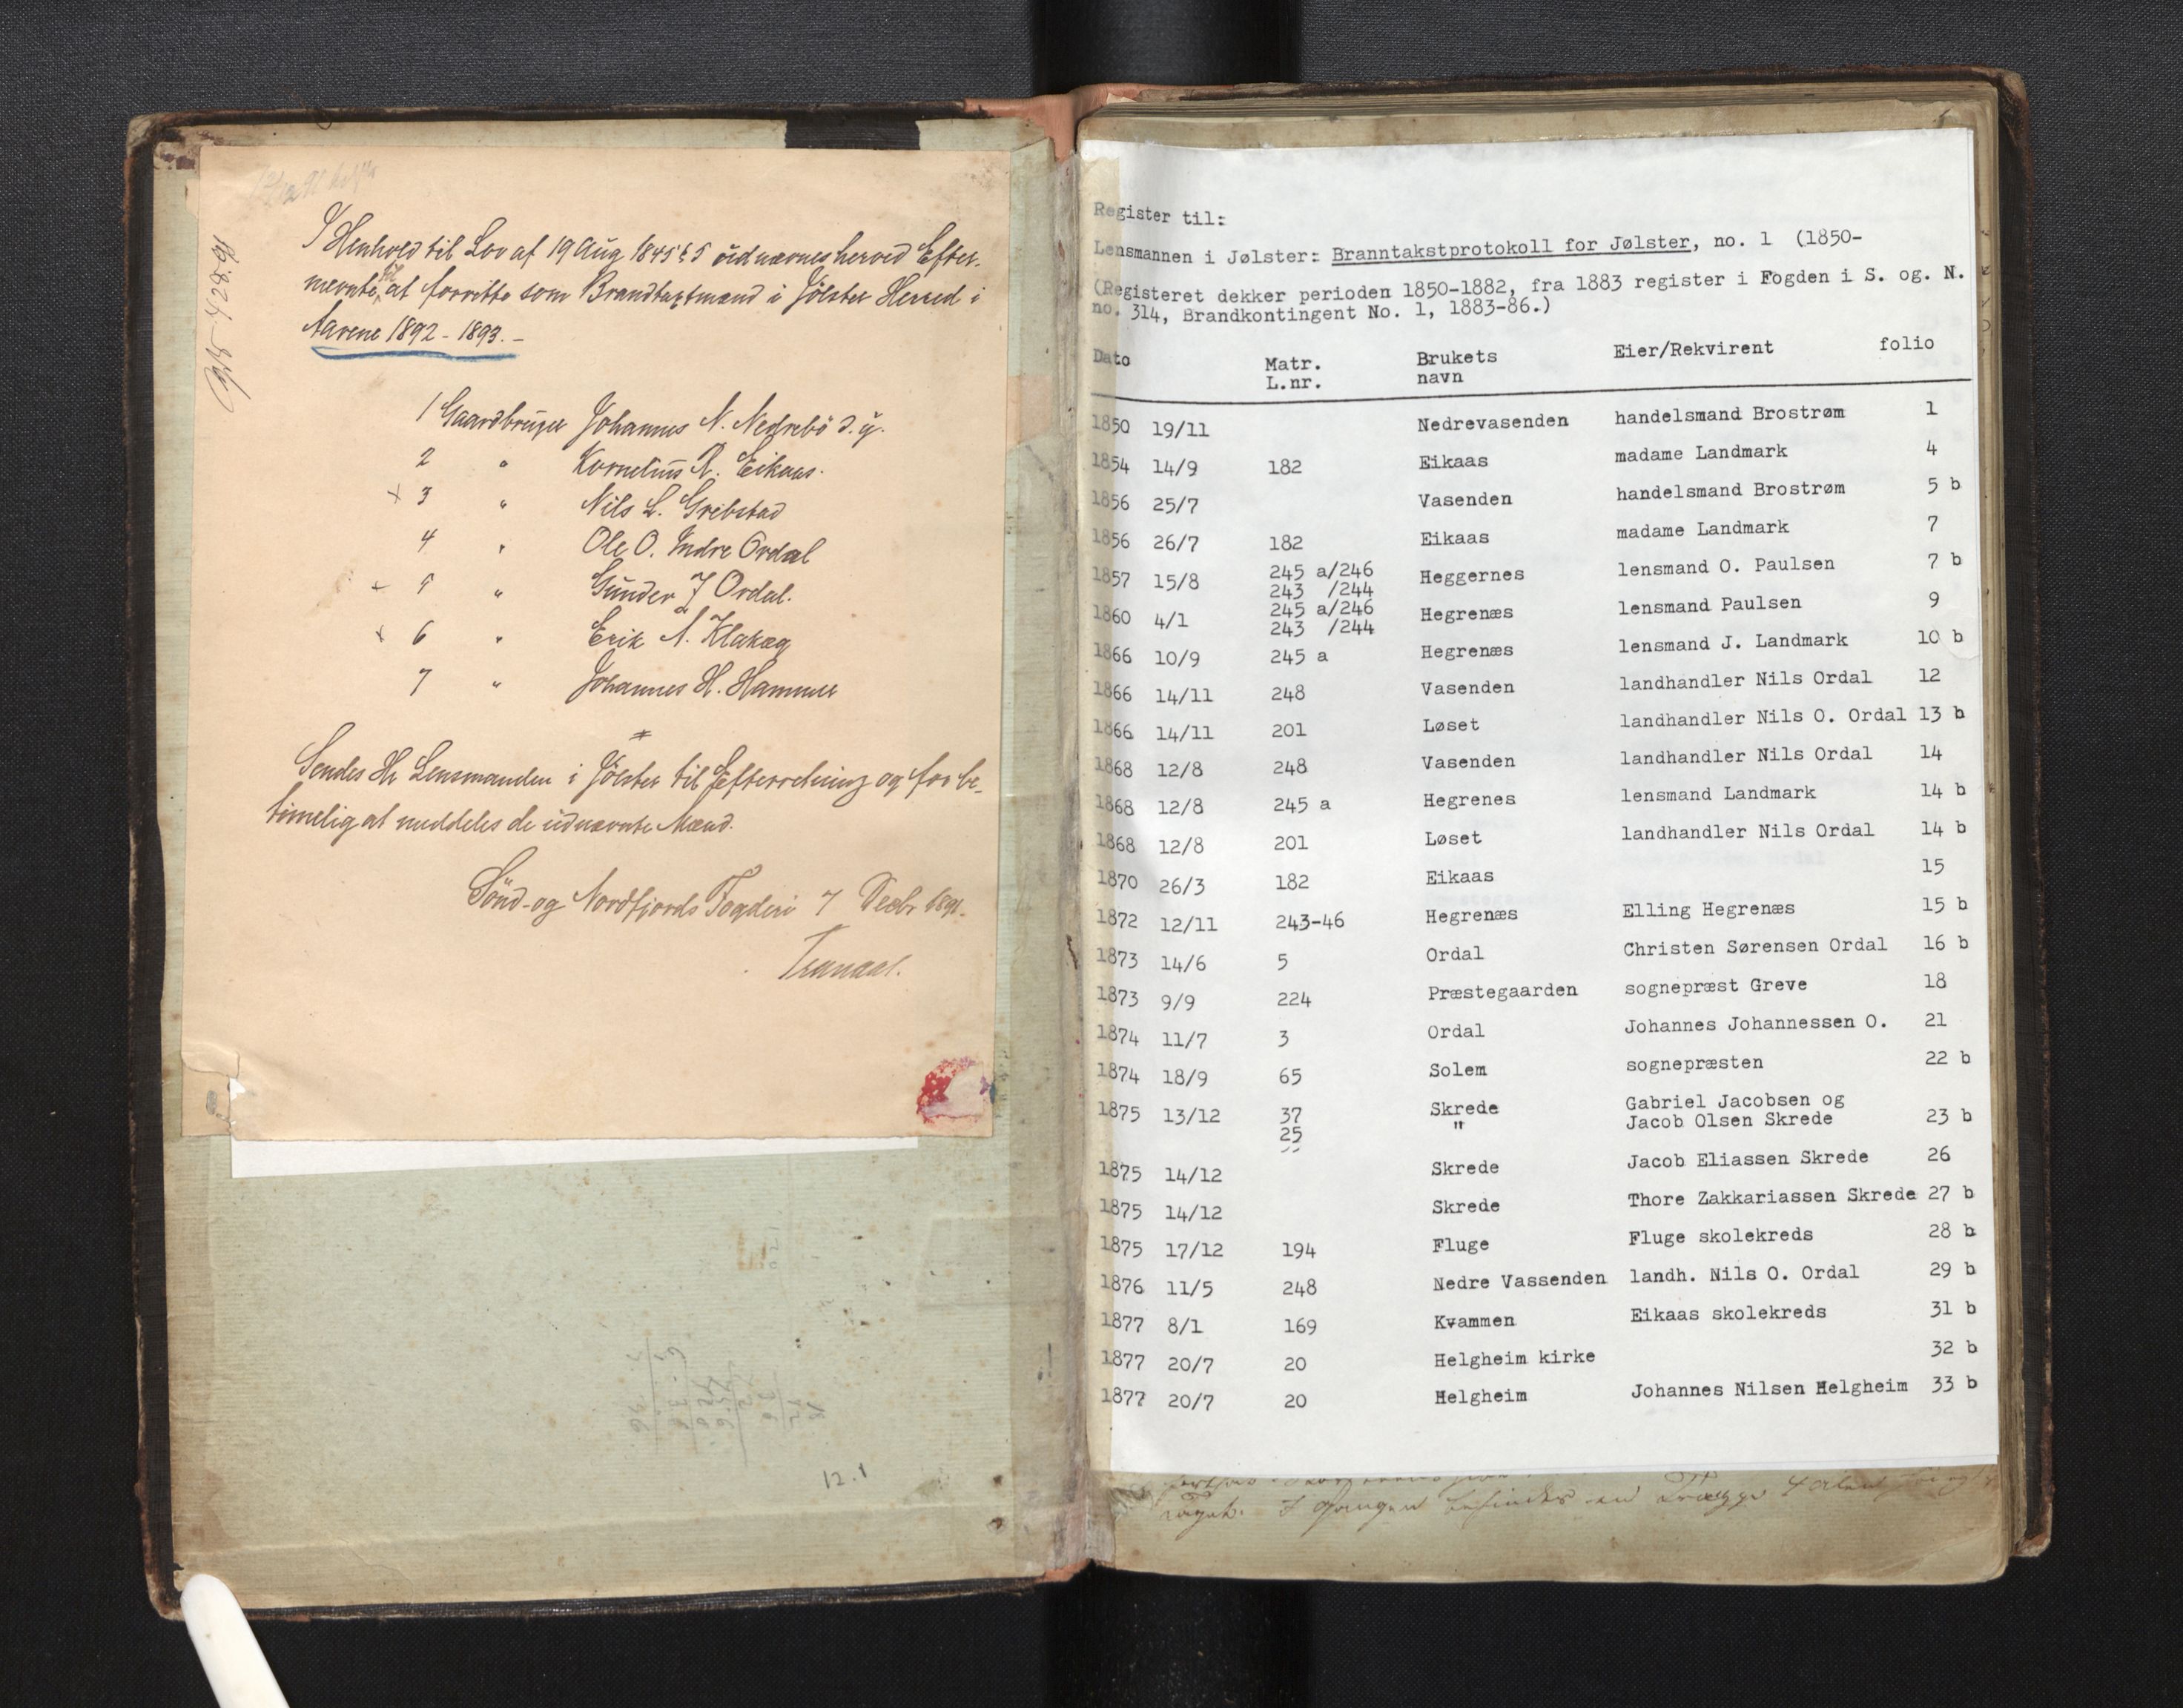 I Henhold til Lov af 19 Aug 1845 § 5 udnævnes herved Efter-
nævnte til at forrette som Brandtaxtmænd i Jølster Herred i
Aarene 1892 - 1893. -
1 Gaardbruger Johannes N. Nedrebö d. y.
2 " Kornelius R. Eikaas.
x 3 " Nils L. Gribstad
4 " Ole O. Indre Ordal
x 5 " Gunder J Ordal.
x 6 " Erik A. Klakæg
7 " Johannes H. Hammer
Sendes Hr Lensmanden i Jølster til Efterretning og for be-
timelig at meddeles de udnævnte Mænd.
Sönd- og Nordfjords Fogderi 7 Decbr 1891.
12.1
Register til:
Lensmannen i Jølster: Branntakstprotokoll for Jølster, no. 1 (1850-
(Registeret dekker perioden 1850-1882, fra 1883 register i Fogden i S. og. N.
no. 314, Brandkontingent No. 1, 1883-86.)
Dato Matr. L.nr. Brukets navn Eier/Rekvirent folio
1850 19/11 Nedrevasenden handelsmand Brostrøm 1
1854 14/9 182 Eikaas madame Landmark 4
1856 25/7 Vasenden handelsmand Brostrøm 5 b
1856 26/7 182 Eikaas madame Landmark 7
1857 15/8 245 a/246 243 /244 Heggernes lensmand O. Paulsen 7 b
1860 4/1 245 a/246 243 /244 Hegrenæs lensmand Paulsen 9
1866 10/9 245 a Hegrenæs lensmand J. Landmark 10 b
1866 14/11 248 Vasenden landhandler Nils Ordal 12
1866 14/11 201 Løset landhandler Nils O. Ordal 13 b
1868 12/8 248 Vasenden landhandler Nils Ordal 14
1868 12/8 245 a Hegrenes lensmand Landmark 14 b
1868 12/8 201 Løset landhandler Nils Ordal 14 b
1870 26/3 182 Eikaas 15
1872 12/11 243-46 Hegrenæs Elling Hegrenæs 15 b
1873 14/6 5 Ordal Christen Sørensen Ordal 16 b
1873 9/9 224 Præstegaarden sognepræst Greve 18
1874 11/7 3 Ordal Johannes Johannessen O. 21
1874 18/9 65 Solem sognepræsten 22 b
1875 13/12 37 Skrede Gabriel Jacobsen og
25 " Jacob Olsen Skrede 23 b
1875 14/12 Skrede Jacob Eliassen Skrede 26
1875 14/12 Skrede Thore Zakkariassen Skrede 27 b
1875 17/12 194 Fluge Fluge skolekreds 28 b
1876 11/5 248 Nedre Vassenden landh. Nils O. Ordal 29 b
1877 8/1 169 Kvammen Eikaas skolekreds 31 b
1877 20/7 20 Helgheim kirke 32 b
1877 20/7 20 Helgheim Johannes Nilsen Helgheim 33 b
I Gangen befindes en Trappe 4 alen